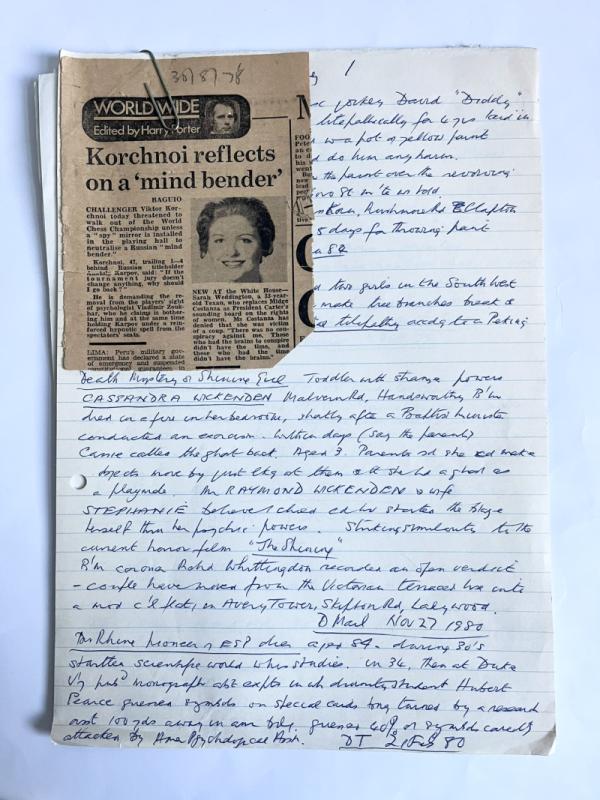 30/8/78
WORLDWIDE
Edited by Harry Porter
Korchnoi reflects
on a 'mind bender'
BAGUIO
CHALLENGER Viktor Kor-
chnoi today threatened to
walk out of the World
Chess Championship unless
a "spy" mirror is installed
in the playing hall to
neutralise a Russian "mind
bender."
Korchnoi, 47, trailing 1—4
behind Russian titleholder
Karpov, said: "If the
tournament jury doesn't
change anything, why should
I go back?"
He is demanding the re-
moval from the players' sight
of psychologist Vladimir Zouk-
har, who he claims is bother-
ing him and at the same time
holding Karpov under a rein-
forced hypnotic spell from the
spectators' seats.
LIMA: Peru's military gov-
ernment has declared a state
of emergency and suspended
constitutional guarantees in
NEW AT the White House—
Sarah Weddington, a 33-year-
old Texan, who replaces Midge
Costanza as President Carter's
sounding board on the rights
of women. Ms Costanza has
denied that she was victim
of a coup. "There was no con-
spiracy against me. Those
who had the brains to conspire
didn't have the time, and
those who had the time
didn't have the brains."
1
jockey David "Diddy"
telepathically for 4 yrs said in
a pot of yellow paint
do him any harm.
the paint over the revolving
told
Rushmore Rd Clapton
5 days for throwing paint
two girls in the South West
make tree branches break &
telepathy accdg to a Peking
Death Mystery of Shining Girl Toddler with strange powers
CASSANDRA WICKENDEN Malvern Rd, Handsworth, B'm
died in a fire in her bedroom, shortly after a Baptist minister
conducted an exorcism. Within days (say the parents)
Carrie called the ghost back. Aged 3. Parents sd she cd make
objects move by just lkg at them & tt she had a ghost as
a playmate. Mr RAYMOND WICKENDEN & wife
STEPHANIE believe child cd hv started the blaze
herself thru her psychic powers. Striking similarity to the
current horror film "The Shining"
B'm coroner Whittingdon recorded an open verdict
- couple have moved from the Victorian terraced hse into
a mod c'l flat, in Avery Tower, Skipton Rd, Ladywood.
D Mail Nov 27 1980
Dr Rhine Pioneer of ESP dies aged 84. during 30's
startled scientific world w his studies. in 34, then at Duke
U'y pub'd monograph abt expts in wh divinity student Hubert
Pearce guessed symbols on special cards being turned by a research
asst 100 yds away in anr bdg. guessed 40% of symbols correctly
attacked by Amer Psychological Assn. DT 2 Feb 80